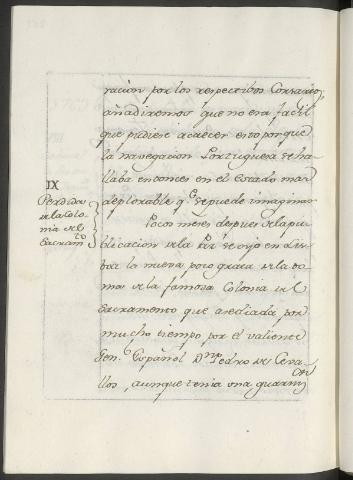 racion por los respectibos Corsarios,
añadiremos que no era facil
que pudiese acaecer esto porque
la navegacion Portuguesa se ha
llaba entonces en el Estado mas
deplorable q.e se puede imaginar
IX
Perdida
de la Colo-
nia del
Sacram.to
Pocos meses despues de la pu
blicacion de la Paz se oyó en Lis
boa la nueva poco grata de la to
ma de la famosa Colonia del
Sacramento que asediada por
mucho tiempo por el valiente
Gen.l Español D.n Pedro de Ceva
llos, aunque tenia una guarni
cion